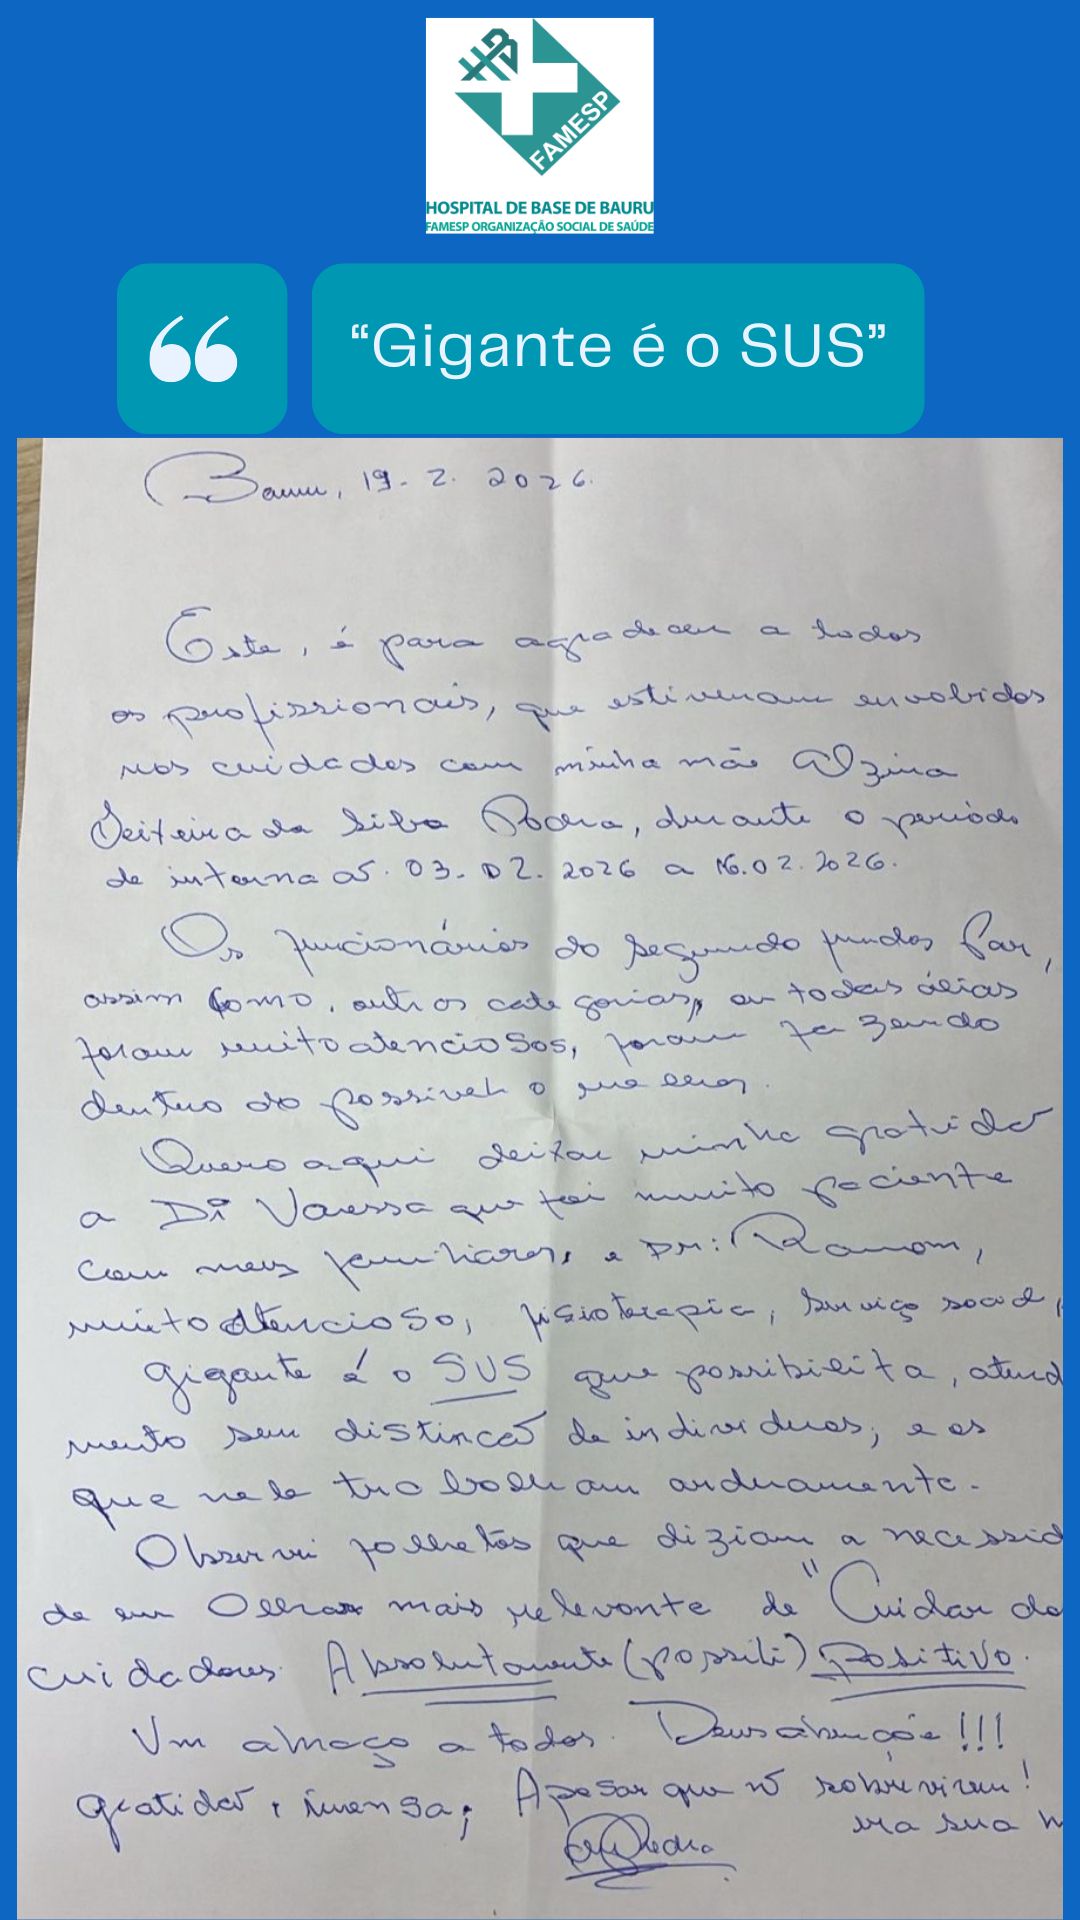 HB
FAMESP
HOSPITAL DE BASE DE BAURU
FAMESP ORGANIZAÇÃO SOCIAL DE SAÚDE
“Gigante é o SUS”
Bauru, 19-2.2026.
Este, é para agradecer a todos
os profissionais, que estiveram envolvidos
nos cuidados com minha mãe Alzira
Teixeira da Silva, durante o período
de internação. 03-02.2026 a 16.02.2026.
Os funcionários do segundo
assim como, outros categorias, em todas áreas
foram muito atenciosos, foram fazendo
dentro do possível o melhor.
Quero aqui deixar minha gratidão
a Drª Vanessa que foi muito paciente
com meus familiares, e Dr: Ramom,
muito atencioso, fisioterapia, serviço social,
Gigante é o SUS que possibilita, atend
mento sem distinção de individuos, e os
que nele trabalham arduamente.
Observei folhetos que diziam a necessid
de em Olhar mais relevante de "Cuidar do
cuidadores. Absolutamente (possiti) positivo.
Um abraço a todos. Deus abençõe!!!
gratidão imensa, Apesar que ñ sobreviveu!